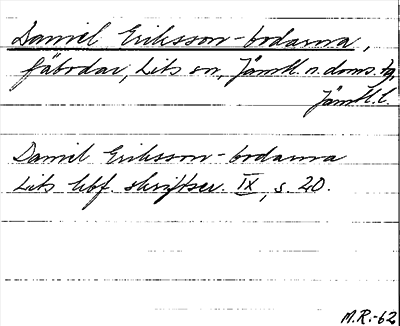 Daniel Eriksson-bodarna,
fäbodar, Lits sn, Jämtl. n. doms. tg,
Jämtl. l.
Daniel Eriksson-bodarna
Lits hbf. skriftser. IX, s. 20.
M.R.-62